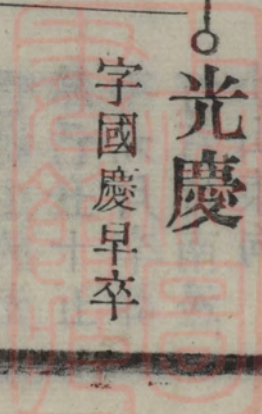 光慶
字國慶早卒